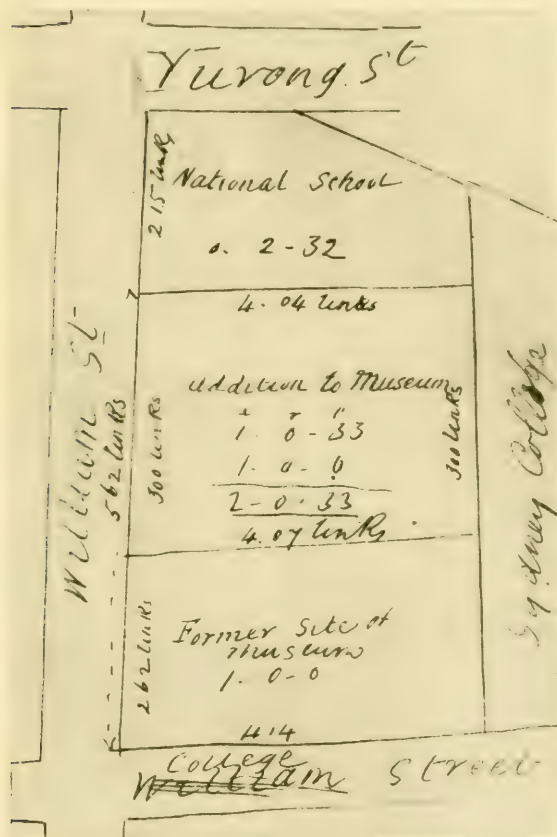 Yurong St
215 links
National School
0. 2-32
4.04 links
William St
562 links
300 links
addition to Museum
a r p
1. 0-33
1. 0-0
2-0.33
4.07 links
300 links
Sydney College
262 links
Former Site of
Museum
1. 0-0
414
College
William Street